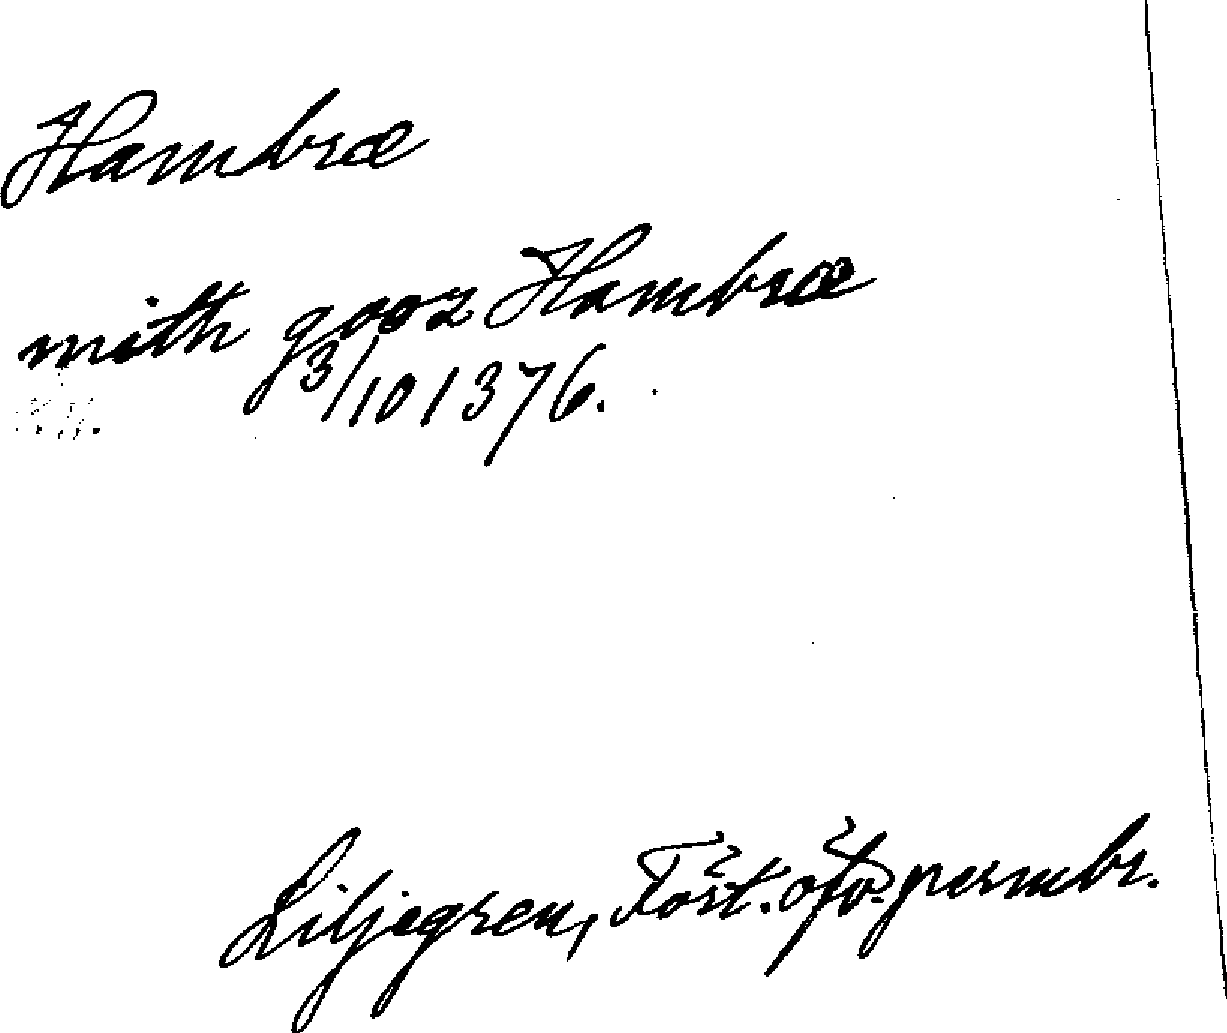 Hambræ
mith gooz Hambræ
3/10 1376.
Liljegren, Tört. öfv. permbr.